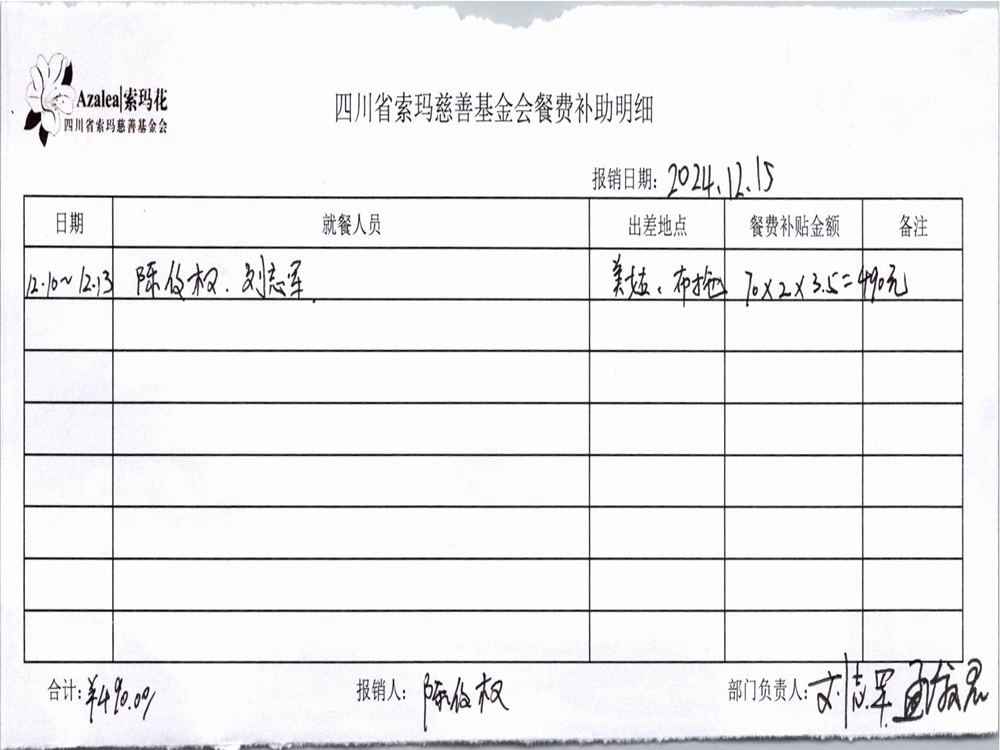 Azalea|索玛花
四川省索玛慈善基金会
四川省索玛慈善基金会餐费补助明细
报销日期: 2024.12.15
日期 就餐人员 出差地点 餐费补贴金额 备注
12.10~12.13 陈俊权、刘志军 美姑、布拖 70×2×3.5=490元
合计:¥490.00 报销人: 陈俊权 部门负责人: 刘志军